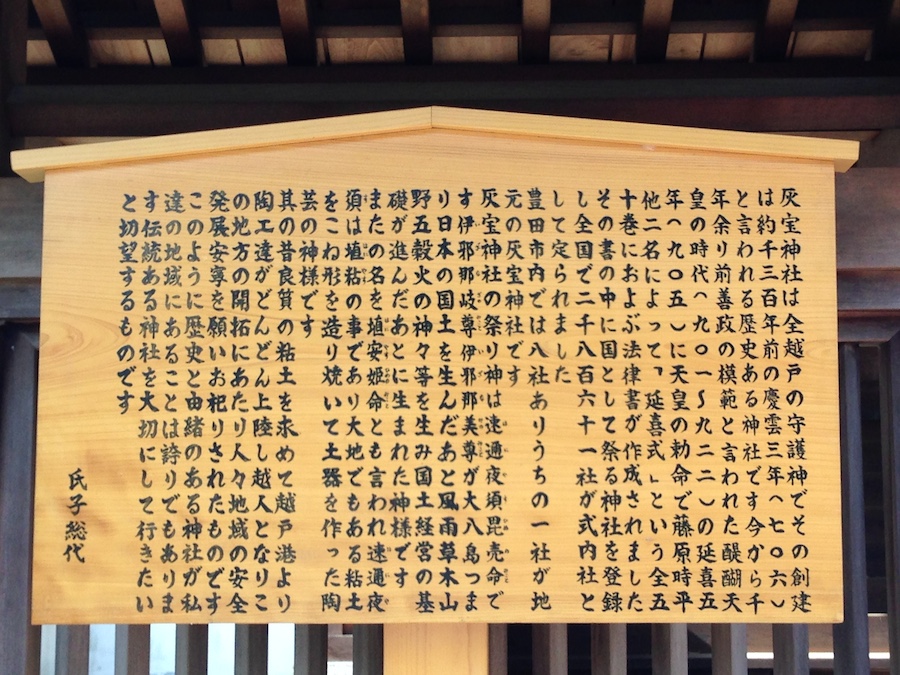 灰宝神社は全越戸の守護神でその創建
は約千三百年前の慶雲三年(七〇六)
と言われる歴史ある神社です今から千
年余り前善政の模範と言われた醍醐天
皇の時代(九〇一～九二二)の延喜五
年(九〇五)に天皇の勅命で藤原時平
他二名によって「延喜式」という全五
十巻におよぶ法律書が作成されました
その書の中に国として祭る神社を登録
し全国で二千八百六十一社が式内社と
して定られました
豊田市内では八社ありうちの一社が地
元の灰宝神社です
灰宝神社の祭り神は速通夜須毘売命で
す伊邪那岐尊伊邪那美尊が大八島つま
り日本の国土を生んだあと風雨草木山
野五穀火の神々等を生み国土経営の基
礎が進んだあとに生まれた神様です
またの名を埴安姫命とも言われ速通夜
須は埴粘の事であり大地でもある粘土
をこね形を造り焼いて土器を作った陶
芸の神様です
其の昔良質の粘土を求めて越戸港より
陶工達がどんどん上陸し越人となりこ
の地方の開拓にあたり人々地域の安全
発展安寧を願いお祀りされたものです
このように歴史と由緒のある神社が私
達の地域にあることは誇りでもありま
す伝統ある神社を大切にして行きたい
と切望するものです
氏子総代